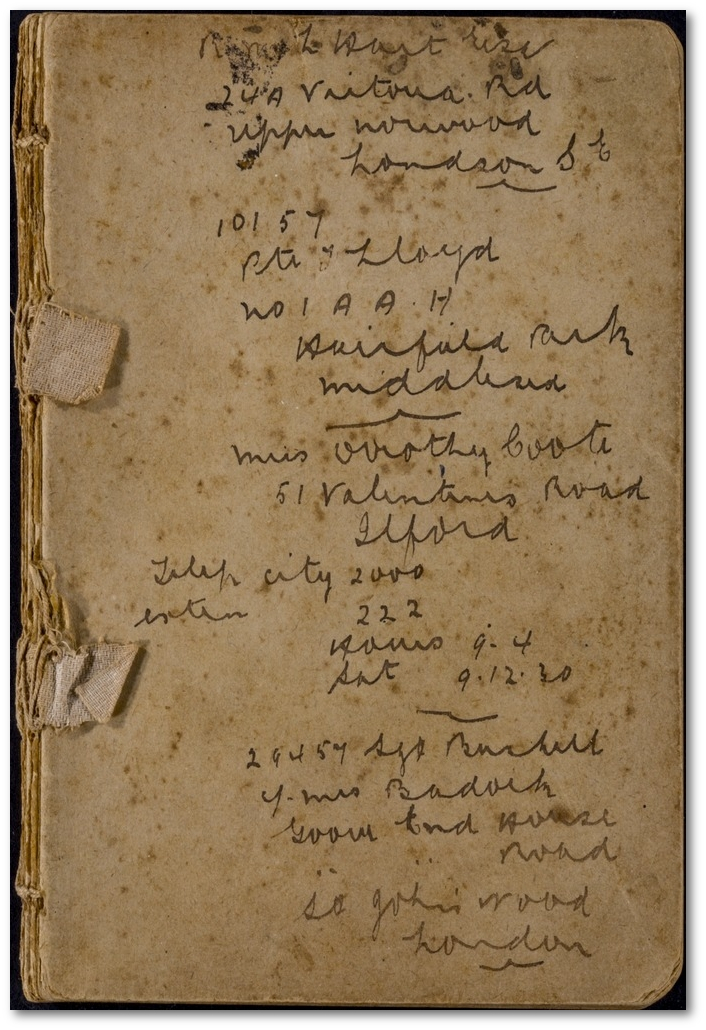 L Hart Esq
24A Victoria Rd
Upper Norwood
London S E
10157
Pte J Lloyd
No 1 A A. H
Hairfield Park
Middlesex
Miss Dorothy Coote
51 Valentines Road
Ilford
Telep city 2000
exten 222
Hours 9-4
Sat 9.12.30
29457 Sgt Burkett
c/- Mrs Badock
Grove End House
" " Road
St Johns Wood
London